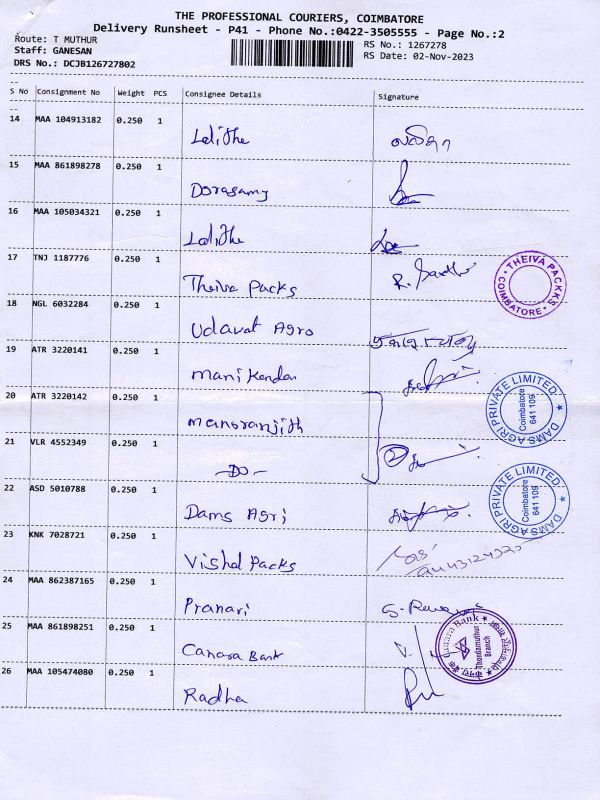 THE PROFESSIONAL COURIERS, COIMBATORE
Delivery Runsheet - P41 - Phone No.:0422-3505555 - Page No.:2
Route: T MUTHUR RS No.: 1267278
Staff: GANESAN RS Date: 02-Nov-2023
DRS No.: DCJB126727802
S No Consignment No Weight PCS Consignee Details Signature
14 MAA 104913182 0.250 1 Lalithe லலிதா
15 MAA 861898278 0.250 1 Dorasamy
16 MAA 105034321 0.250 1 Lalithe
17 TNJ 1187776 0.250 1 Theiva Packs R.
THEIVA PACKKS COIMBATORE
18 NGL 6032284 0.250 1 Udavat Agro
19 ATR 3220141 0.250 1 Manikandan
DAMS AGRI PRIVATE LIMITED Coimbatore 641 109
20 ATR 3220142 0.250 1 Manoranjith
21 VLR 4552349 0.250 1 -DO- 2
DAMS AGRI PRIVATE LIMITED Coimbatore 641 109
22 ASD 5010788 0.250 1 Dams Agri
23 KNK 7028721 0.250 1 Vishal Packs
24 MAA 862387165 0.250 1 Pranari
25 MAA 861898251 0.250 1 Canara Bank
Canara Bank Thondamuthur Branch
26 MAA 105474080 0.250 1 Radha